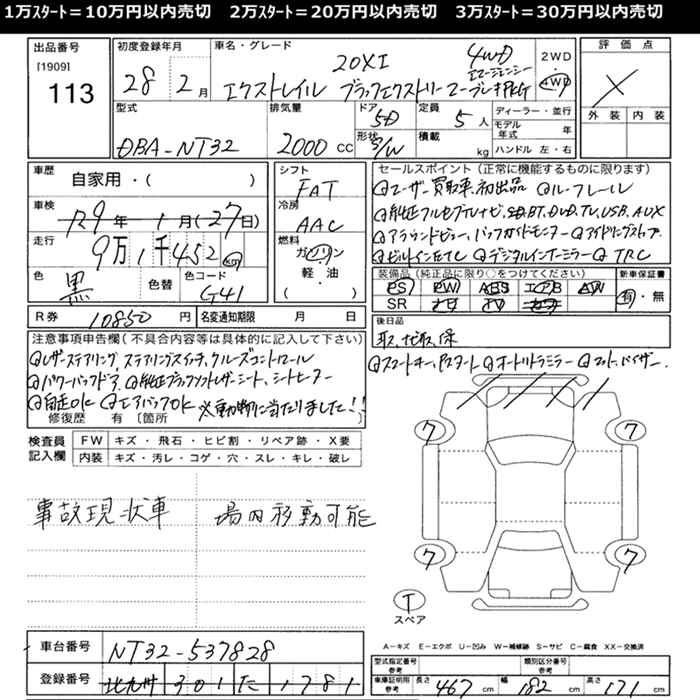 1万ｽﾀｰﾄ＝10万円以内売切　2万ｽﾀｰﾄ＝20万円以内売切　3万ｽﾀｰﾄ＝30万円以内売切
出品番号
[1909]
113
初度登録年月
28年2月
車名・グレード
20XI 4WD
エクストレイル ブラックエクストリーマー エマージェンシーブレーキPKG
2WD
4WD
評価点
X
外装 内装
型式
DBA-NT32
排気量
2000 CC
ドア
5D
形状
S/W
定員
5人
積載
kg
ディーラー・並行
モデル年式 年
ハンドル 左・右
車歴
自家用・( )
車検
R9年1月(27日)
走行
9万1千452km
色
黒
色替
色コード
G41
シフト
FAT
冷房
AAC
燃料
ガソリン
軽・油
セールスポイント（正常に機能するものに限ります）
◎ユーザー買取車、初出品 ◎ルーフレール
◎純正フルセグTVナビ、SD.BT.DVD.TV.USB.AUX
◎アラウンドビュー、バックガイドモニター ◎アイドリングストップ
◎ビルトインETC ◎デジタルインナーミラー ◎TRC
装備品（純正品に限り○をつけてください）
PS PW ABS エアB AW
SR ナビ TV
新車保証書
有・無
R券 10850円
名変通知期限 月 日
後日品
取、地取、保
注意事項申告欄（不具合内容等は具体的に記入して下さい）
◎レザーステアリング、ステアリングスイッチ、クルーズコントロール
◎パワーバックドア、◎純正ブラックソフトレザーシート、シートヒーター
◎自走OK ◎エアバッグOK ※動物に当たりました!!
修復歴 有 〔箇所
◎スマートキー、Pスタート ◎オートリトラミラー ◎マット、バイザー
検査員記入欄
FW キズ・飛石・ヒビ割・リペア跡・X要
内装 キズ・汚レ・コゲ・穴・スレ・キレ・破レ
事故現状車 場内移動可能
7 7
7 7
T
スペア
A－キズ E－エクボ U－凹み W－補修跡 S－サビ C－腐食 XX－交換済
車台番号
NT32-537828
登録番号
北九州 301 た 1781
型式指定番号 参考
類別区分番号 参考
車庫証明用 参考
長さ 467 cm
幅 182 cm
高さ 171 cm